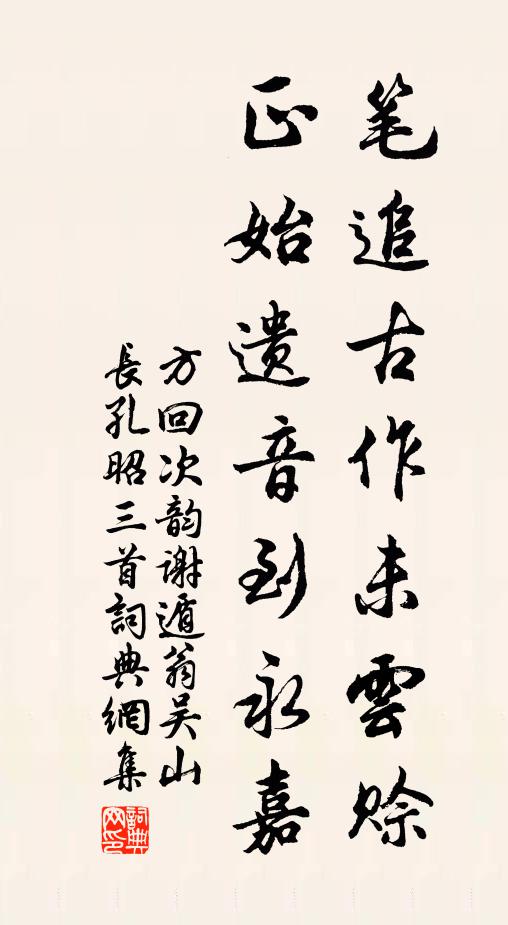 笔追古作未雲赊
正始遗音到永嘉
方回次韵谢遁翁吴山
長孔昭三首詞典網集
詞典網印